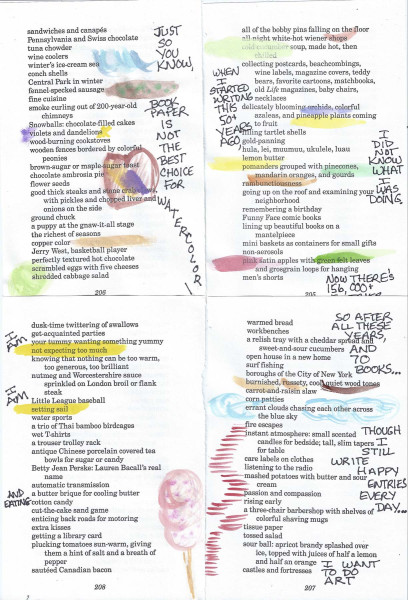 sandwiches and canapés
Pennsylvania and Swiss chocolate
tuna chowder
wine coolers
winter's ice-cream sea
conch shells
Central Park in winter
fennel-specked sausage
fine cuisine
smoke curling out of 200-year-old
chimneys
Snowballs: chocolate-filled cakes
violets and dandelions
wood-burning cookstoves
wooden fences bordered by colorful
peonies
brown-sugar or maple-sugar toast
chocolate ambrosia pie
flower seeds
good thick steaks and stone crab claws,
with pickles and chopped liver and
onions on the side
ground chuck
a puppy at the gnaw-it-all stage
the richest of seasons
copper color
Jerry West, basketball player
perfectly textured hot chocolate
scrambled eggs with five cheeses
shredded cabbage salad
JUST
SO
YOU
KNOW,
BOOK
PAPER
IS
NOT
THE
BEST
CHOICE
FOR
WATERCOLOR!
all of the bobby pins falling on the floor
all-night white-hot wiener shops
cold cucumber soup, made hot, then
chilled
collecting postcards, beachcombings,
wine labels, magazine covers, teddy
bears, favorite cartoons, matchbooks,
old Life magazines, baby chairs,
necklaces
delicately blooming orchids, colorful
azaleas, and pineapple plants coming
to fruit
filling tartlet shells
gold-panning
hula, lei, muumuu, ukulele, luau
lemon butter
pomanders grouped with pinecones,
mandarin oranges, and gourds
rambunctiousness
going up on the roof and examining your
neighborhood
remembering a birthday
Funny Face comic books
lining up beautiful books on a
mantelpiece
mini baskets as containers for small gifts
non-aerosols
pink satin apples with green felt leaves
and grosgrain loops for hanging
men's shorts
205
WHEN
I
STARTED
WRITING
THIS
50+
YEARS
AGO
I
DID
NOT
KNOW
WHAT
I
WAS
DOING.
NOW THERE'S
156,000+
dusk-time twittering of swallows
get-acquainted parties
your tummy wanting something yummy
not expecting too much
knowing that nothing can be too warm,
too generous, too brilliant
nutmeg and Worcestershire sauce
sprinkled on London broil or flank
steak
Little League baseball
setting sail
water sports
a trio of Thai bamboo birdcages
wet T-shirts
a trouser trolley rack
antique Chinese porcelain covered tea
bowls for sugar or candy
Betty Jean Perske: Lauren Bacall's real
name
automatic transmission
a butter brique for cooling butter
cotton candy
cut-the-cake sand game
enticing back roads for motoring
extra kisses
getting a library card
plucking tomatoes sun-warm, giving
them a hint of salt and a breath of
pepper
sautéed Canadian bacon
206
I
AM
I
AM
AND
EATING
warmed bread
workbenches
a relish tray with a cheddar spread and
sweet-and-sour cucumbers
open house in a new home
surf fishing
boroughs of the City of New York
burnished, russety, cool, quiet wood tones
carrot-and-raisin slaw
corn patties
errant clouds chasing each other across
the blue sky
fire escapes
instant atmosphere: small scented
candles for bedside; tall, slim tapers
for table
care labels on clothes
listening to the radio
mashed potatoes with butter and sour
cream
passion and compassion
rising early
a three-chair barbershop with shelves of
colorful shaving mugs
tissue paper
tossed salad
sour ball: apricot brandy splashed over
ice, topped with juices of half a lemon
and half an orange
castles and fortresses
207
SO AFTER
ALL THESE
YEARS,
AND
TO
BOOKS...
THOUGH
I
STILL
WRITE
HAPPY
ENTRIES
EVERY
DAY...
I WANT
TO DO
ART